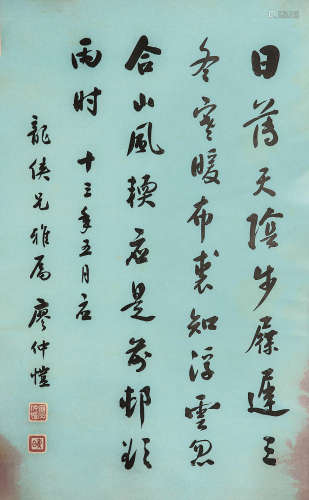 日薄天陰步屧遲三
冬寒暖布裘知浮雲忽
合山風輭应是前邨欲
雨时 十三年五月应
龍俠兄雅属 廖仲愷